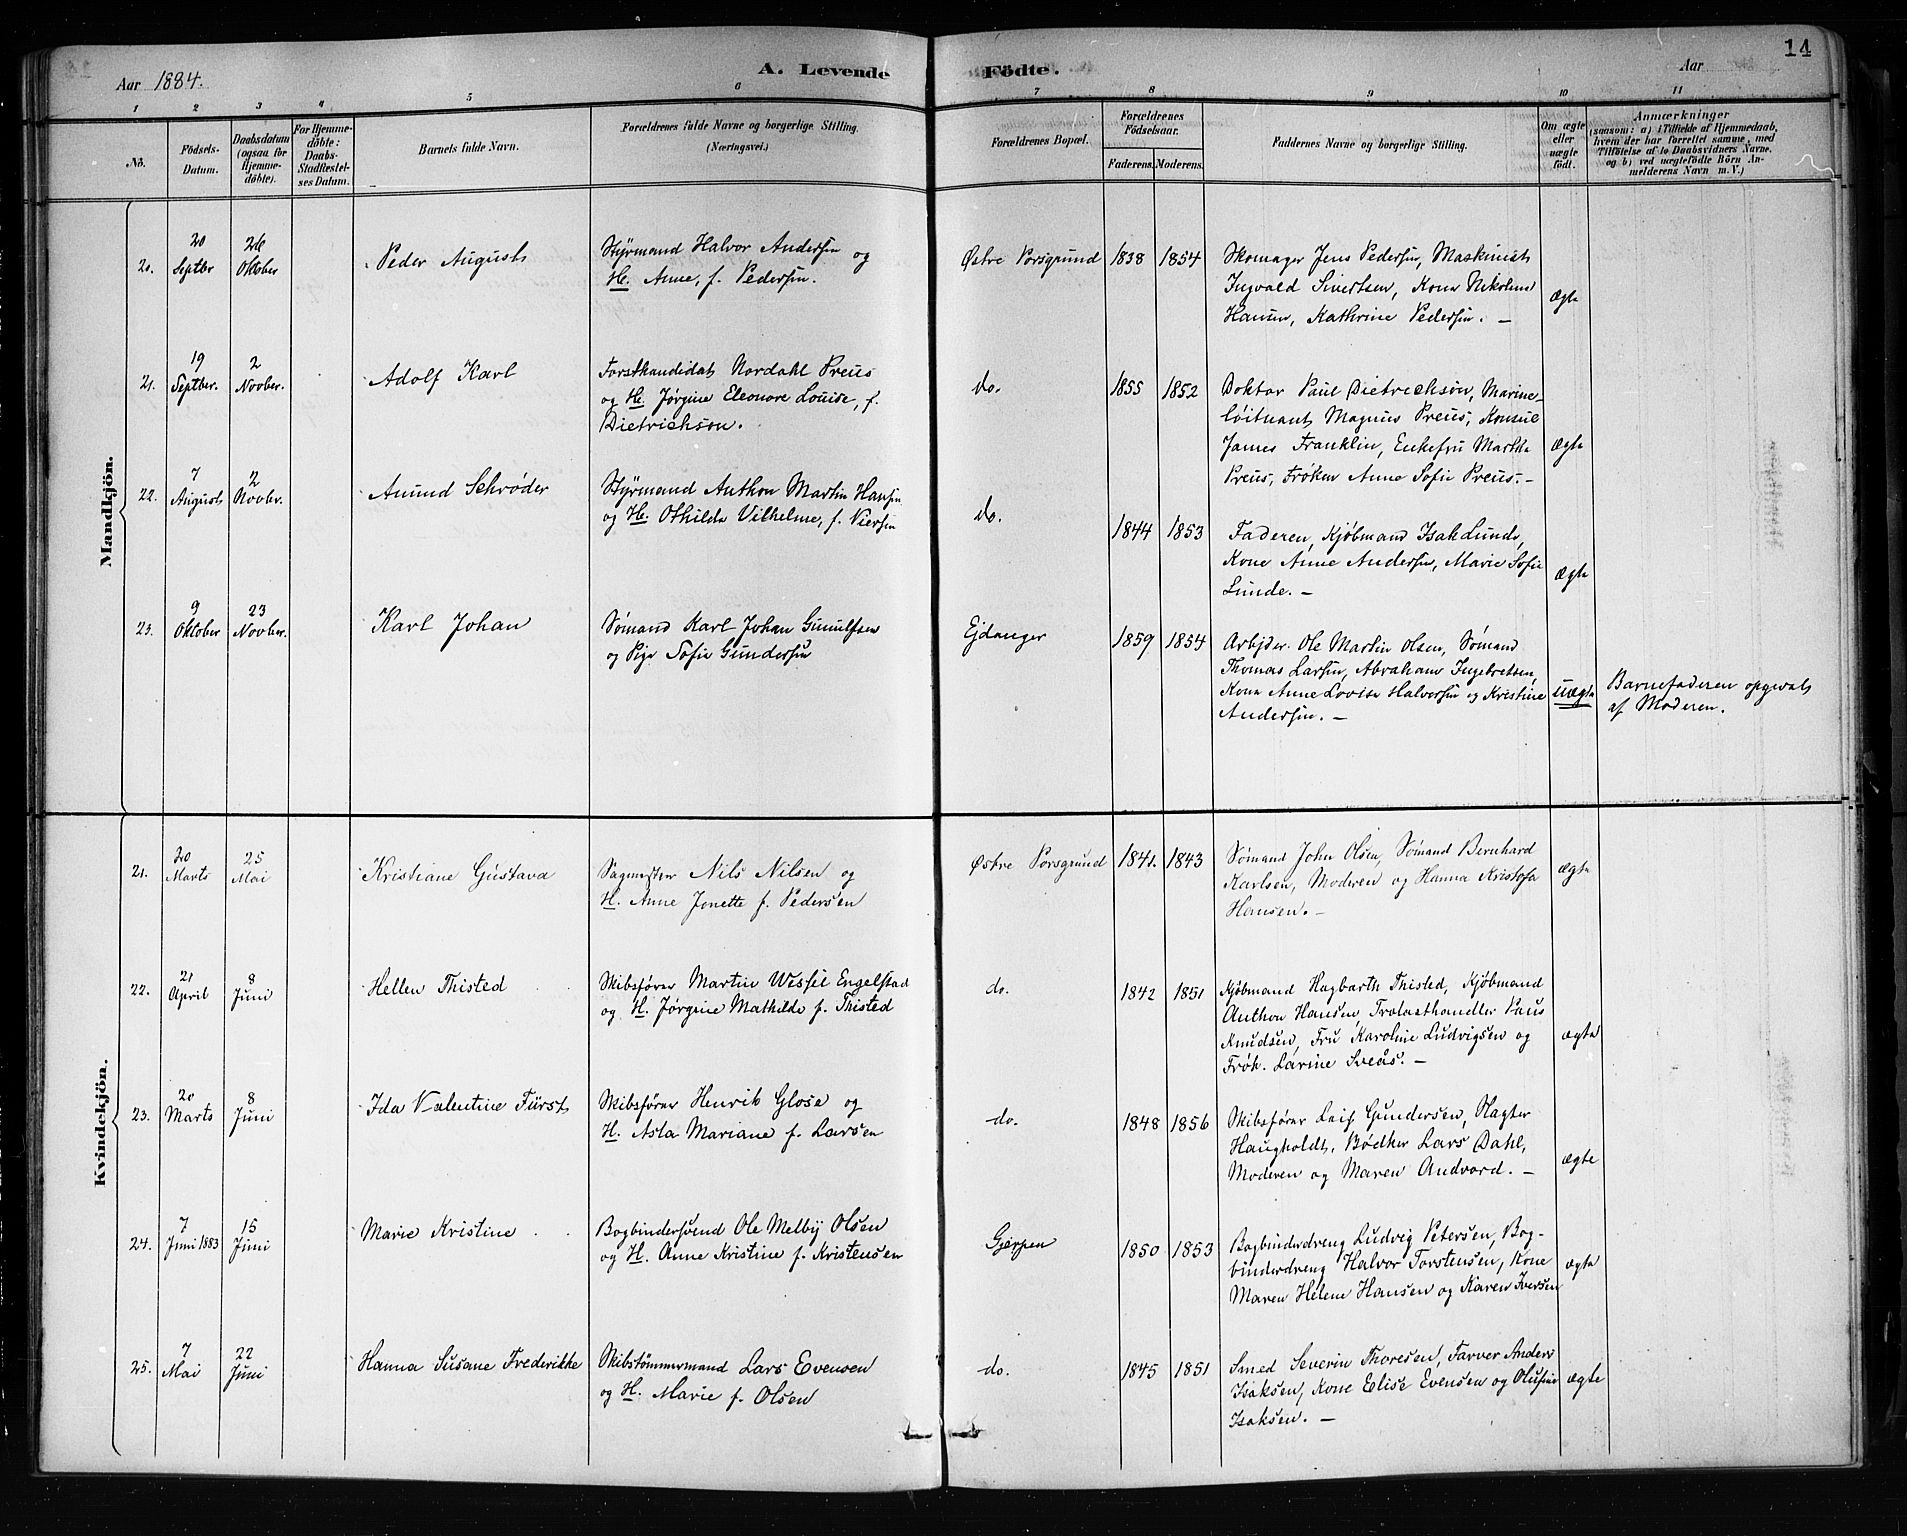 14
Aar 1884.
A. Levende
Födte.
Aar
1
2
3
4
5
6
7
8
9
10
11
No.
Födsels-
Datum.
Daabsdatum
(ogsaa for
Hjemme-
döbte).
For Hjemme-
döbte:
Daabs-
Stadfæstel-
ses Datum.
Barnets fulde Navn.
Forældrenes fulde Navne og borgerlige Stilling.
(Næringsvei.)
Forældrenes Bopæl.
Forældrenes
Födselsaar.
Faderens.
Moderens.
Faddernes Navne og borgerlige Stilling.
Om ægte
eller
uægte
født.
Anmærkninger
(saasom: a) i Tilfælde af Hjemmedaab,
hvem der har forrettet samme, med
Tilføielse af to Daabsvidners Navne.
og b) ved uægtefödte Börn An-
melderens Navn m. V.)
Mandkjön.
20.
20
Septbr
26
Oktober
Peder August
Styrmand Halvor Andersen og
H. Anne, f. Pedersen.
Østre Porsgrund
1838
1854
Skomager Jens Pedersen, Maskinist
Ingvald Sivertsen, Kone Nikoline
Hansen, Kathrine Pedersen. —
ægte
21.
19
Septber.
2
Novber.
Adolf Karl
Forstkandidat Nordahl Preus
og H. Jørgine Eleonore Louise, f.
Dietrichson.
do.
1855
1852
Doktor Paul Dietrichson, Marine-
løitnant Magnus Preus, Konsul
James Franklin, Enkefru Marthe
Preus, Frøken Anne Sofie Preus. —
Ægte
22.
7
August
2
Novber.
Amund Schrøder
Styrmand Anthon Martin Hansen
og H. Othilde Vilhelme, f. Viersen
do.
1844
1853
Faderen, Kjøbmand Isak Lunde,
Kone Anne Andersen, Marie Sofie
Lunde. —
Ægte
23.
9
Oktober
23
Novber.
Karl Johan
Sømand Karl Johan Gunulfsen
og Pige Sofie Gundersen
Ejdanger
1859
1854
Arbejder Ole Martin Olsen, Sømand
Thomas Larsen, Abraham Ingebretsen,
Kone Anne Lovise Halvorsen og Kristine
Andersen. —
uægte
Barnefaderen opgivet
af Moderen.
Kvindekjön.
21.
20
Marts
25
Mai
Kristiane Gustava
Sagmester Nils Nilsen og
H. Anne Jonette f. Pedersen
Østre Porsgrund
1841.
1843
Sømand John Olsen, Sømand Bernhard
Karlsen, Moderen og Hanna Kristofa
Hansen. —
ægte
22.
21
April
8
Juni
Hellen Thisted
Skibsfører Martin Wessel Engelstad
og H. Jørgine Mathilde f. Thisted
do.
1842
1851
Kjøbmand Hagbarth Thisted, Kjøbmand
Anthon Hansen, Trælasthandler Paus
Knudsen, Fru Karoline Ludvigsen og
Frøk. Larine Sveås. —
ægte
23.
20
Marts
8
Juni
Ida Valentine Fürst
Skibsfører Henrik Glose og
H. Asta Mariane f. Larsen
do.
1848
1856
Skibsfører Leif Gundersen, Slagter
Haugholdt, Bødker Lars Dahl,
Moderen og Maren Andvord. —
ægte
24.
7
Juni 1883
15
Juni
Marie Kristine
Bogbindersvend Ole Melby Olsen
og H. Anne Kristine f. Kristensen
Gjerpen
1850
1853
Bogbinderdreng Ludvig Petersen, Bog-
binderdreng Halvor Torstensen, Kone
Maren Helene Hansen og Karen Iversen
ægte
25.
7
Mai
22
Juni
Hanna Susane Frederikke
Skibstømmermand Lars Evensen
og H. Marie f. Olsen
do.
1845
1851
Smed Severin Thoresen, Farver Anders
Isaksen, Kone Elise Evensen og Olufine
Isaksen. —
ægte